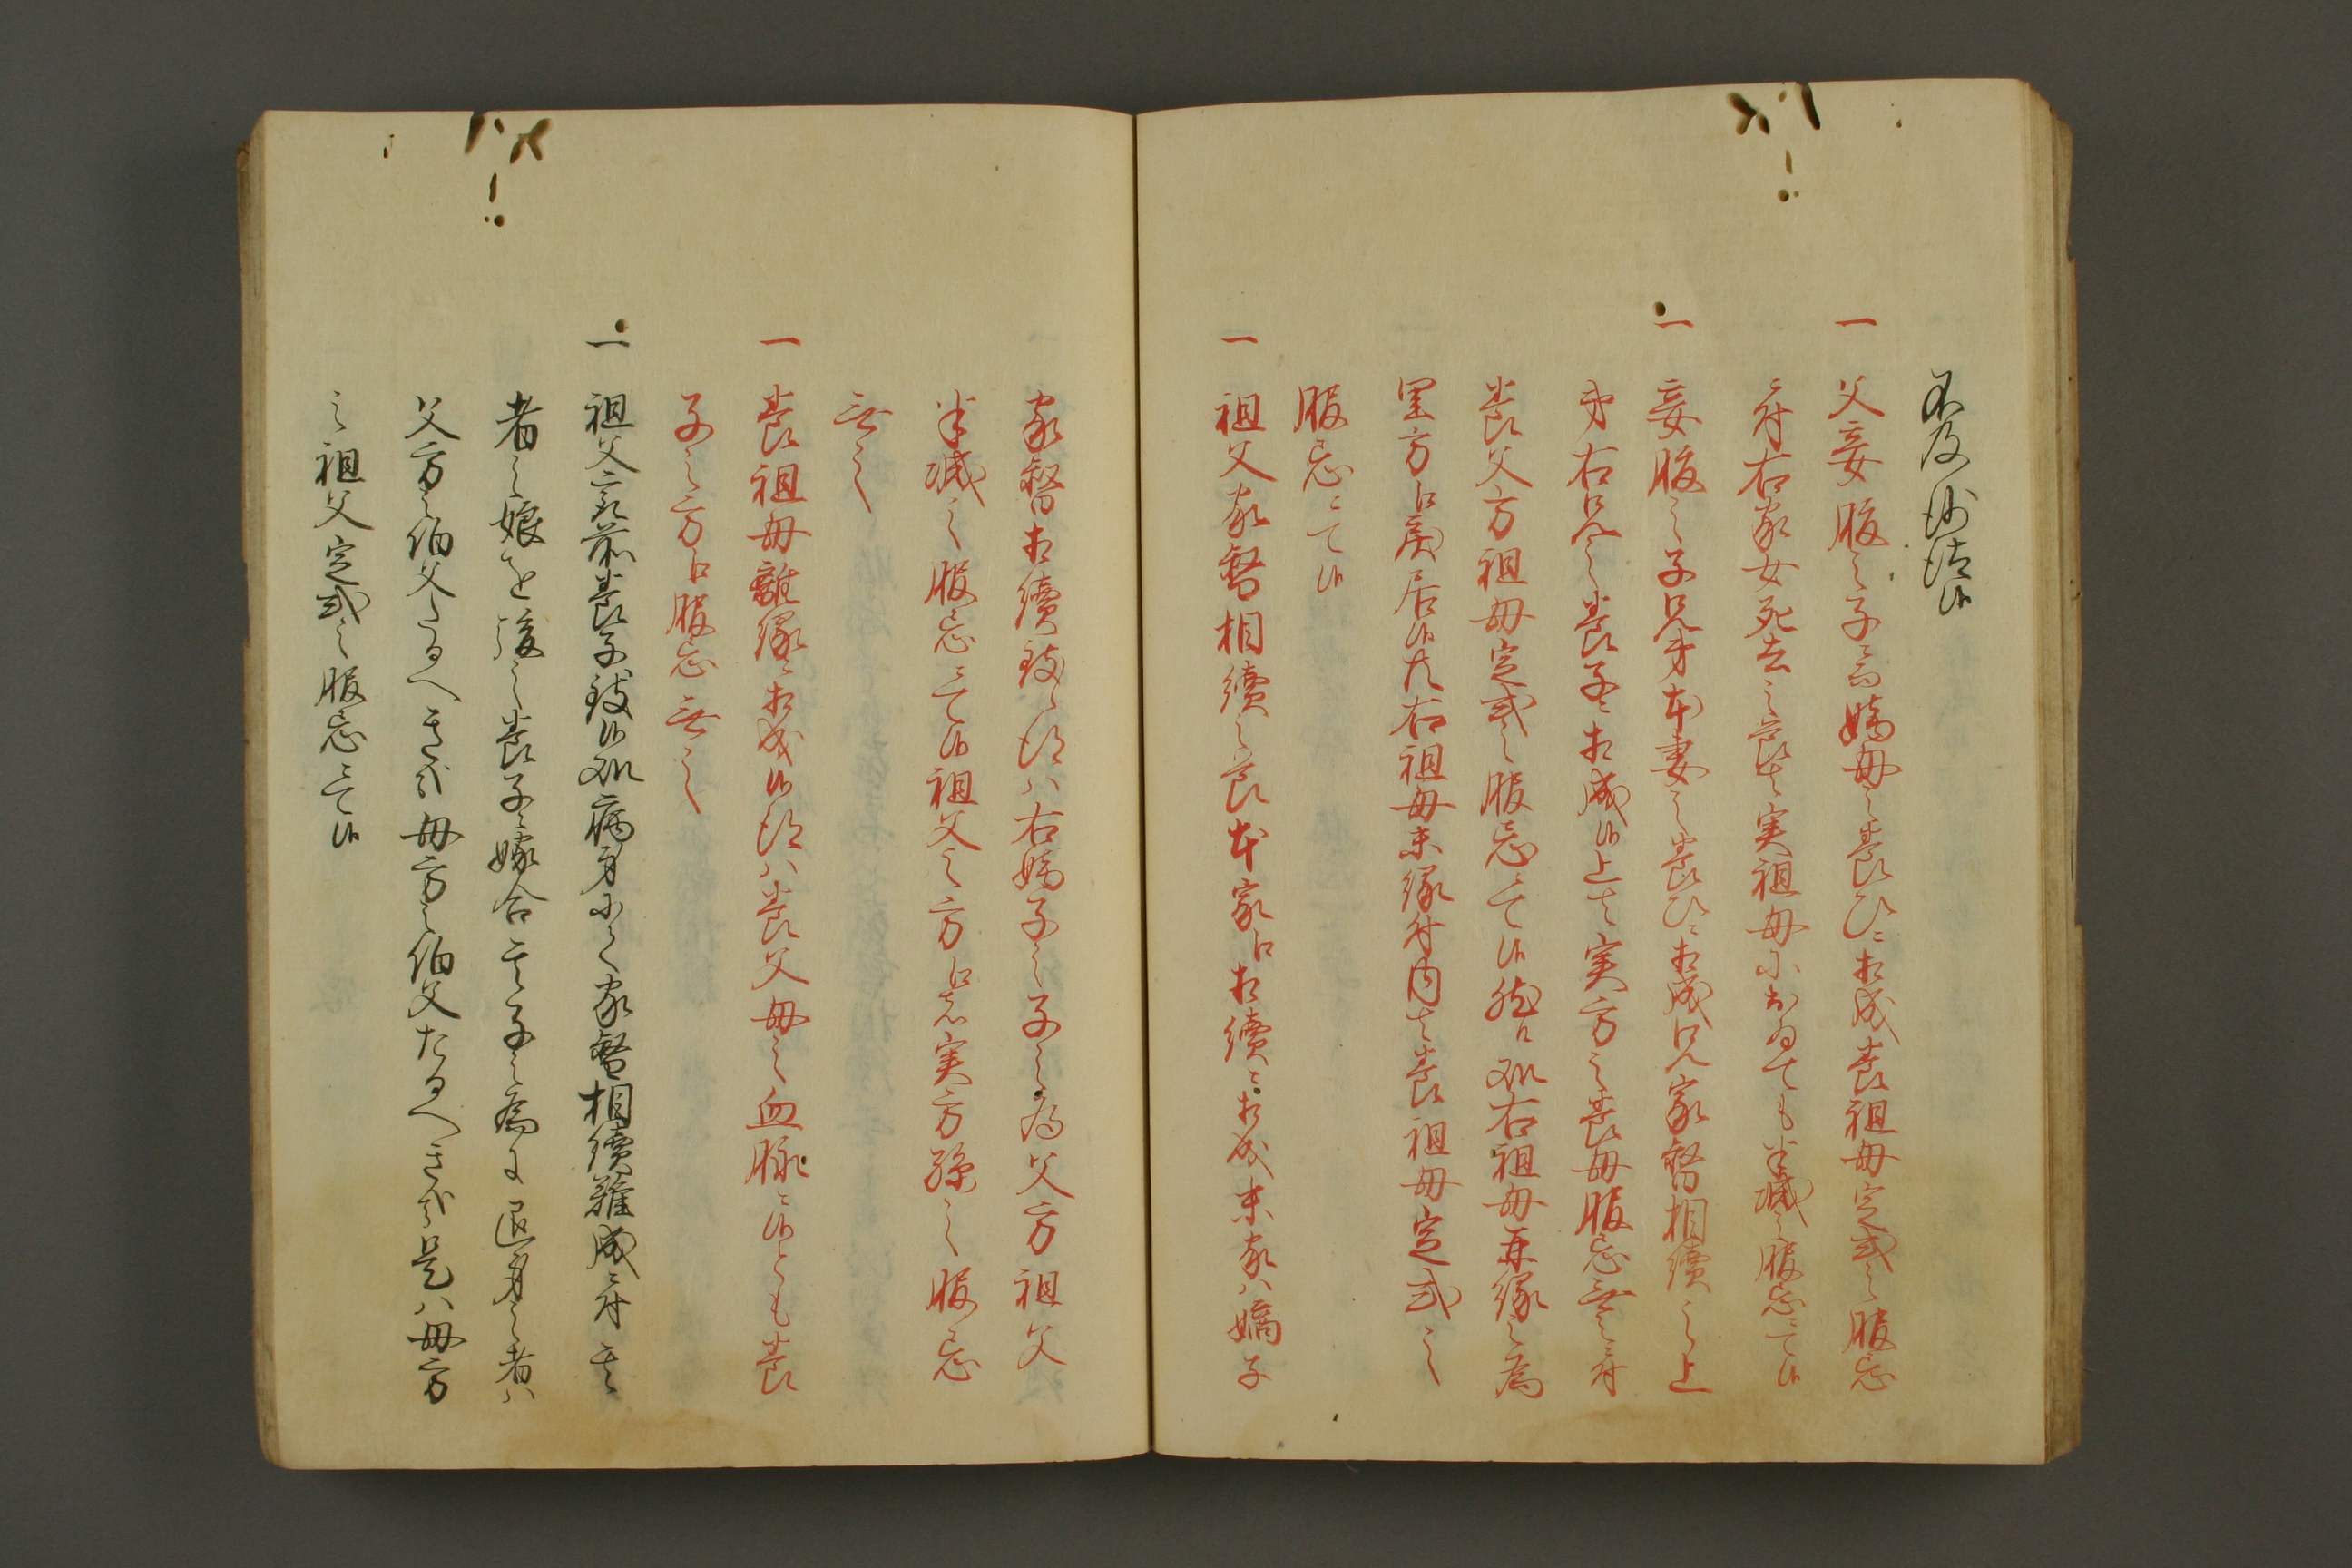 不及沙汰候
一 父妾腹之子ニ而嫡母之養ひニ相成養祖母定式之服忌
ニ付右家女死去之節ハ実祖母ニおゐても半減之服忌ニて候
一 妾腹之子兄弟本妻之養ひニ相成兄家督相続之上
弟右兄之養子ニ相成候上ハ実方之養母服忌無之ニ付
養父方祖母定式之服忌ニて候然ル処右祖母再縁之為
里方江罷居候共右祖母未縁付内ハ養祖母定式之
服忌ニて候
一 祖父家督相続之養本家江相続ニ相成末家ハ嫡子
家督相続致候得ハ右嫡子之子之為父方祖父
半減之服忌ニて候祖父之方江者実方孫之服忌
無之
一 養祖母離縁ニ相成候得ハ養父母之血脉ニ候とも養
子之方江服忌無之
一 祖父之前養子致候処病身にて家督相続難成ニ付其
者之娘を後之養子ニ嫁合其子之為に退身之者ハ
父方之伯父たるへき哉母方之伯父たるへき哉是ハ母方
之祖父定式之服忌ニて候